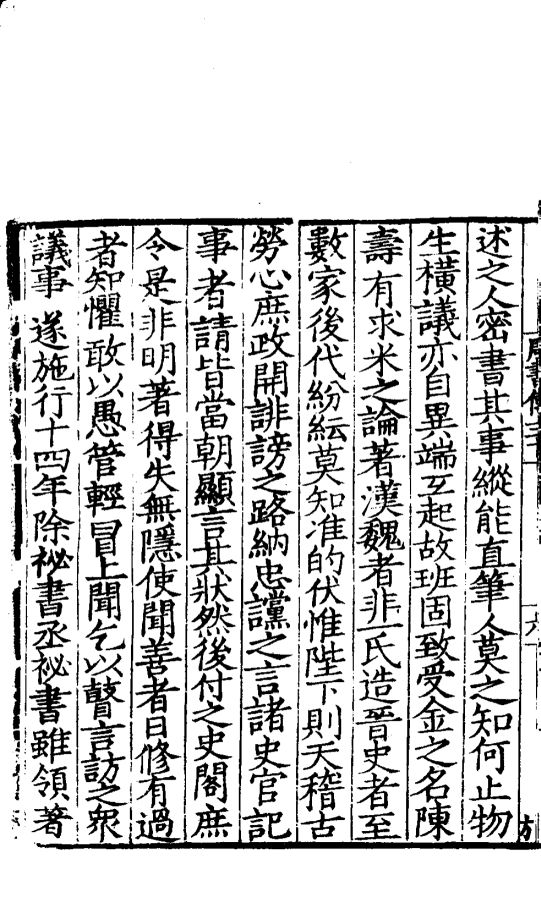 述之人密書其事縱能直筆人莫之知何止物
生橫議亦自異端互起故班固致受金之名陳
壽有求米之論著漢魏者非一氏造晉史者至
數家後代紛紜莫知准的伏惟陛下則天稽古
勞心庶政開誹謗之路納忠讜之言諸史官記
事者請皆當朝顯言其狀然後付之史閣庶
令是非明著得失無隱使聞善者日修有過
者知懼敢以愚管輕冒上聞乞以瞽言訪之衆
議事遂施行十四年除祕書丞祕書雖領著